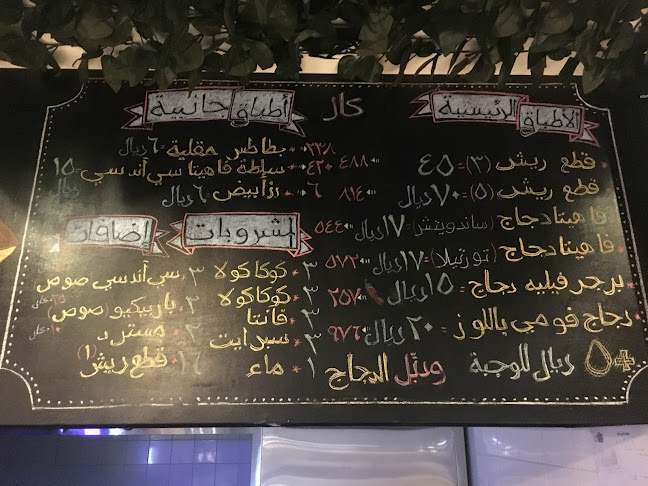 الأطباق الرئيسية
قطع ريش (٣) = ٤٥
قطع ريش (٥) = ٧٠ ريال
فاهيتا دجاج (ساندويتش) = ١٧ ريال
فاهيتا دجاج (تورتيلا) = ١٧ ريال
برجر فيليه دجاج = ١٥ ريال
دجاج فو مي باللوز = ٢٠ ريال
+٥ ريال للوجبة ودبّل الدجاج
كال
٤٨٨
٨١٤
٥٤٤
٥٧٢
٢٥٧
٩٧٦
أطباق جانبية
٢٣٨ بطاطس مقلية = ٦ ريال
٤٢٠ سلطة فاهيتا سي آند سي = ١٥ ريال
٦ رز أبيض = ٦ ريال
المشروبات
كوكا كولا ٣
كوكا كولا ٣
فانتا ٣
سبرايت ٣
ماء ١
إضافات
سي آند سي صوص ٣
باربيكيو (صوص) ٢
مسترد ٢
قطع ريش (١) ١٦